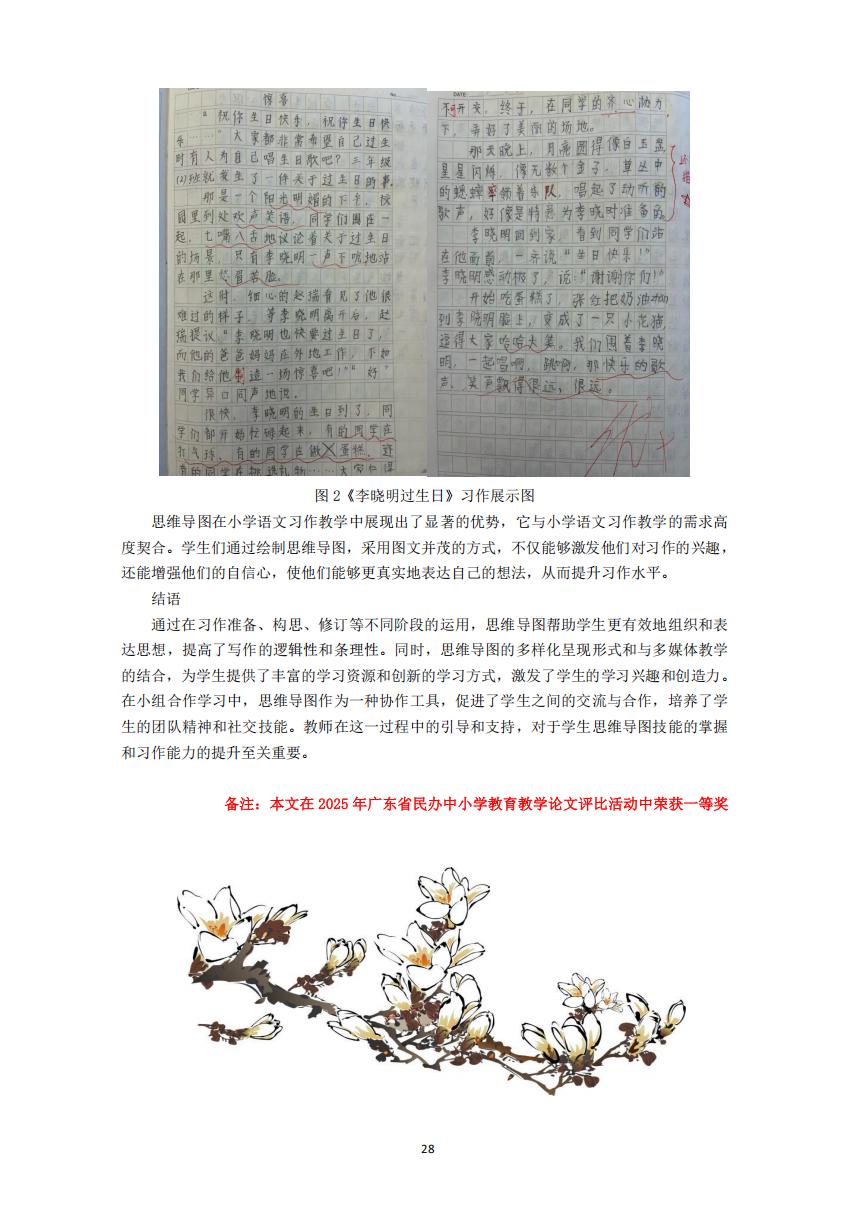 惊喜
“祝你生日快乐，祝你生日快
乐……”大家都非常希望自己过生
时有人为自己唱生日歌吧？三年级
(2)班就发生了一件关于过生日的事。
那是一个阳光明媚的下午，校
园里到处欢声笑语，同学们围在一
起，七嘴八舌地议论着关于过生日
的场景，只有李晓明一声不吭地站
在那里愁眉苦脸。
这时，细心的赵瑞看见了他很
难过的样子。等李晓明离开后，赵
瑞提议“李晓明也快要过生日了，
而他的爸爸妈妈在外地工作，不如
我们给他制造一场惊喜吧！”“好”
同学异口同声地说。
很快，李晓明的生日到了，同
学们都开始忙碌起来，有的同学在
打气球，有的同学在做蛋糕，还
有的同学在挑选礼物……大家忙得
DATE
不可开交，终于，在同学的齐心协力
下，弄好了美丽的场地。
那天晚上，月亮圆得像白玉盘，
星星闪烁，像无数个金子，草丛中
的蟋蟀率领着乐队，唱起了动听的
歌声，好像是特意为李晓明准备的。
李晓明回到家，看到同学们站
在他面前，一齐说“生日快乐！”
李晓明感动极了，说：“谢谢你们！”
开始吃蛋糕了，张红把奶油抹
到李晓明脸上，变成了一只小花猫，
逗得大家哈哈大笑。我们围着李晓
明，一起唱啊，跳啊，那快乐的歌
声、笑声飘得很远，很远。
图 2《李晓明过生日》习作展示图
思维导图在小学语文习作教学中展现出了显著的优势，它与小学语文习作教学的需求高
度契合。学生们通过绘制思维导图，采用图文并茂的方式，不仅能够激发他们对习作的兴趣，
还能增强他们的自信心，使他们能够更真实地表达自己的想法，从而提升习作水平。
结语
通过在习作准备、构思、修订等不同阶段的运用，思维导图帮助学生更有效地组织和表
达思想，提高了写作的逻辑性和条理性。同时，思维导图的多样化呈现形式和与多媒体教学
的结合，为学生提供了丰富的学习资源和创新的学习方式，激发了学生的学习兴趣和创造力。
在小组合作学习中，思维导图作为一种协作工具，促进了学生之间的交流与合作，培养了学
生的团队精神和社交技能。教师在这一过程中的引导和支持，对于学生思维导图技能的掌握
和习作能力的提升至关重要。
备注：本文在 2025 年广东省民办中小学教育教学论文评比活动中荣获一等奖
28